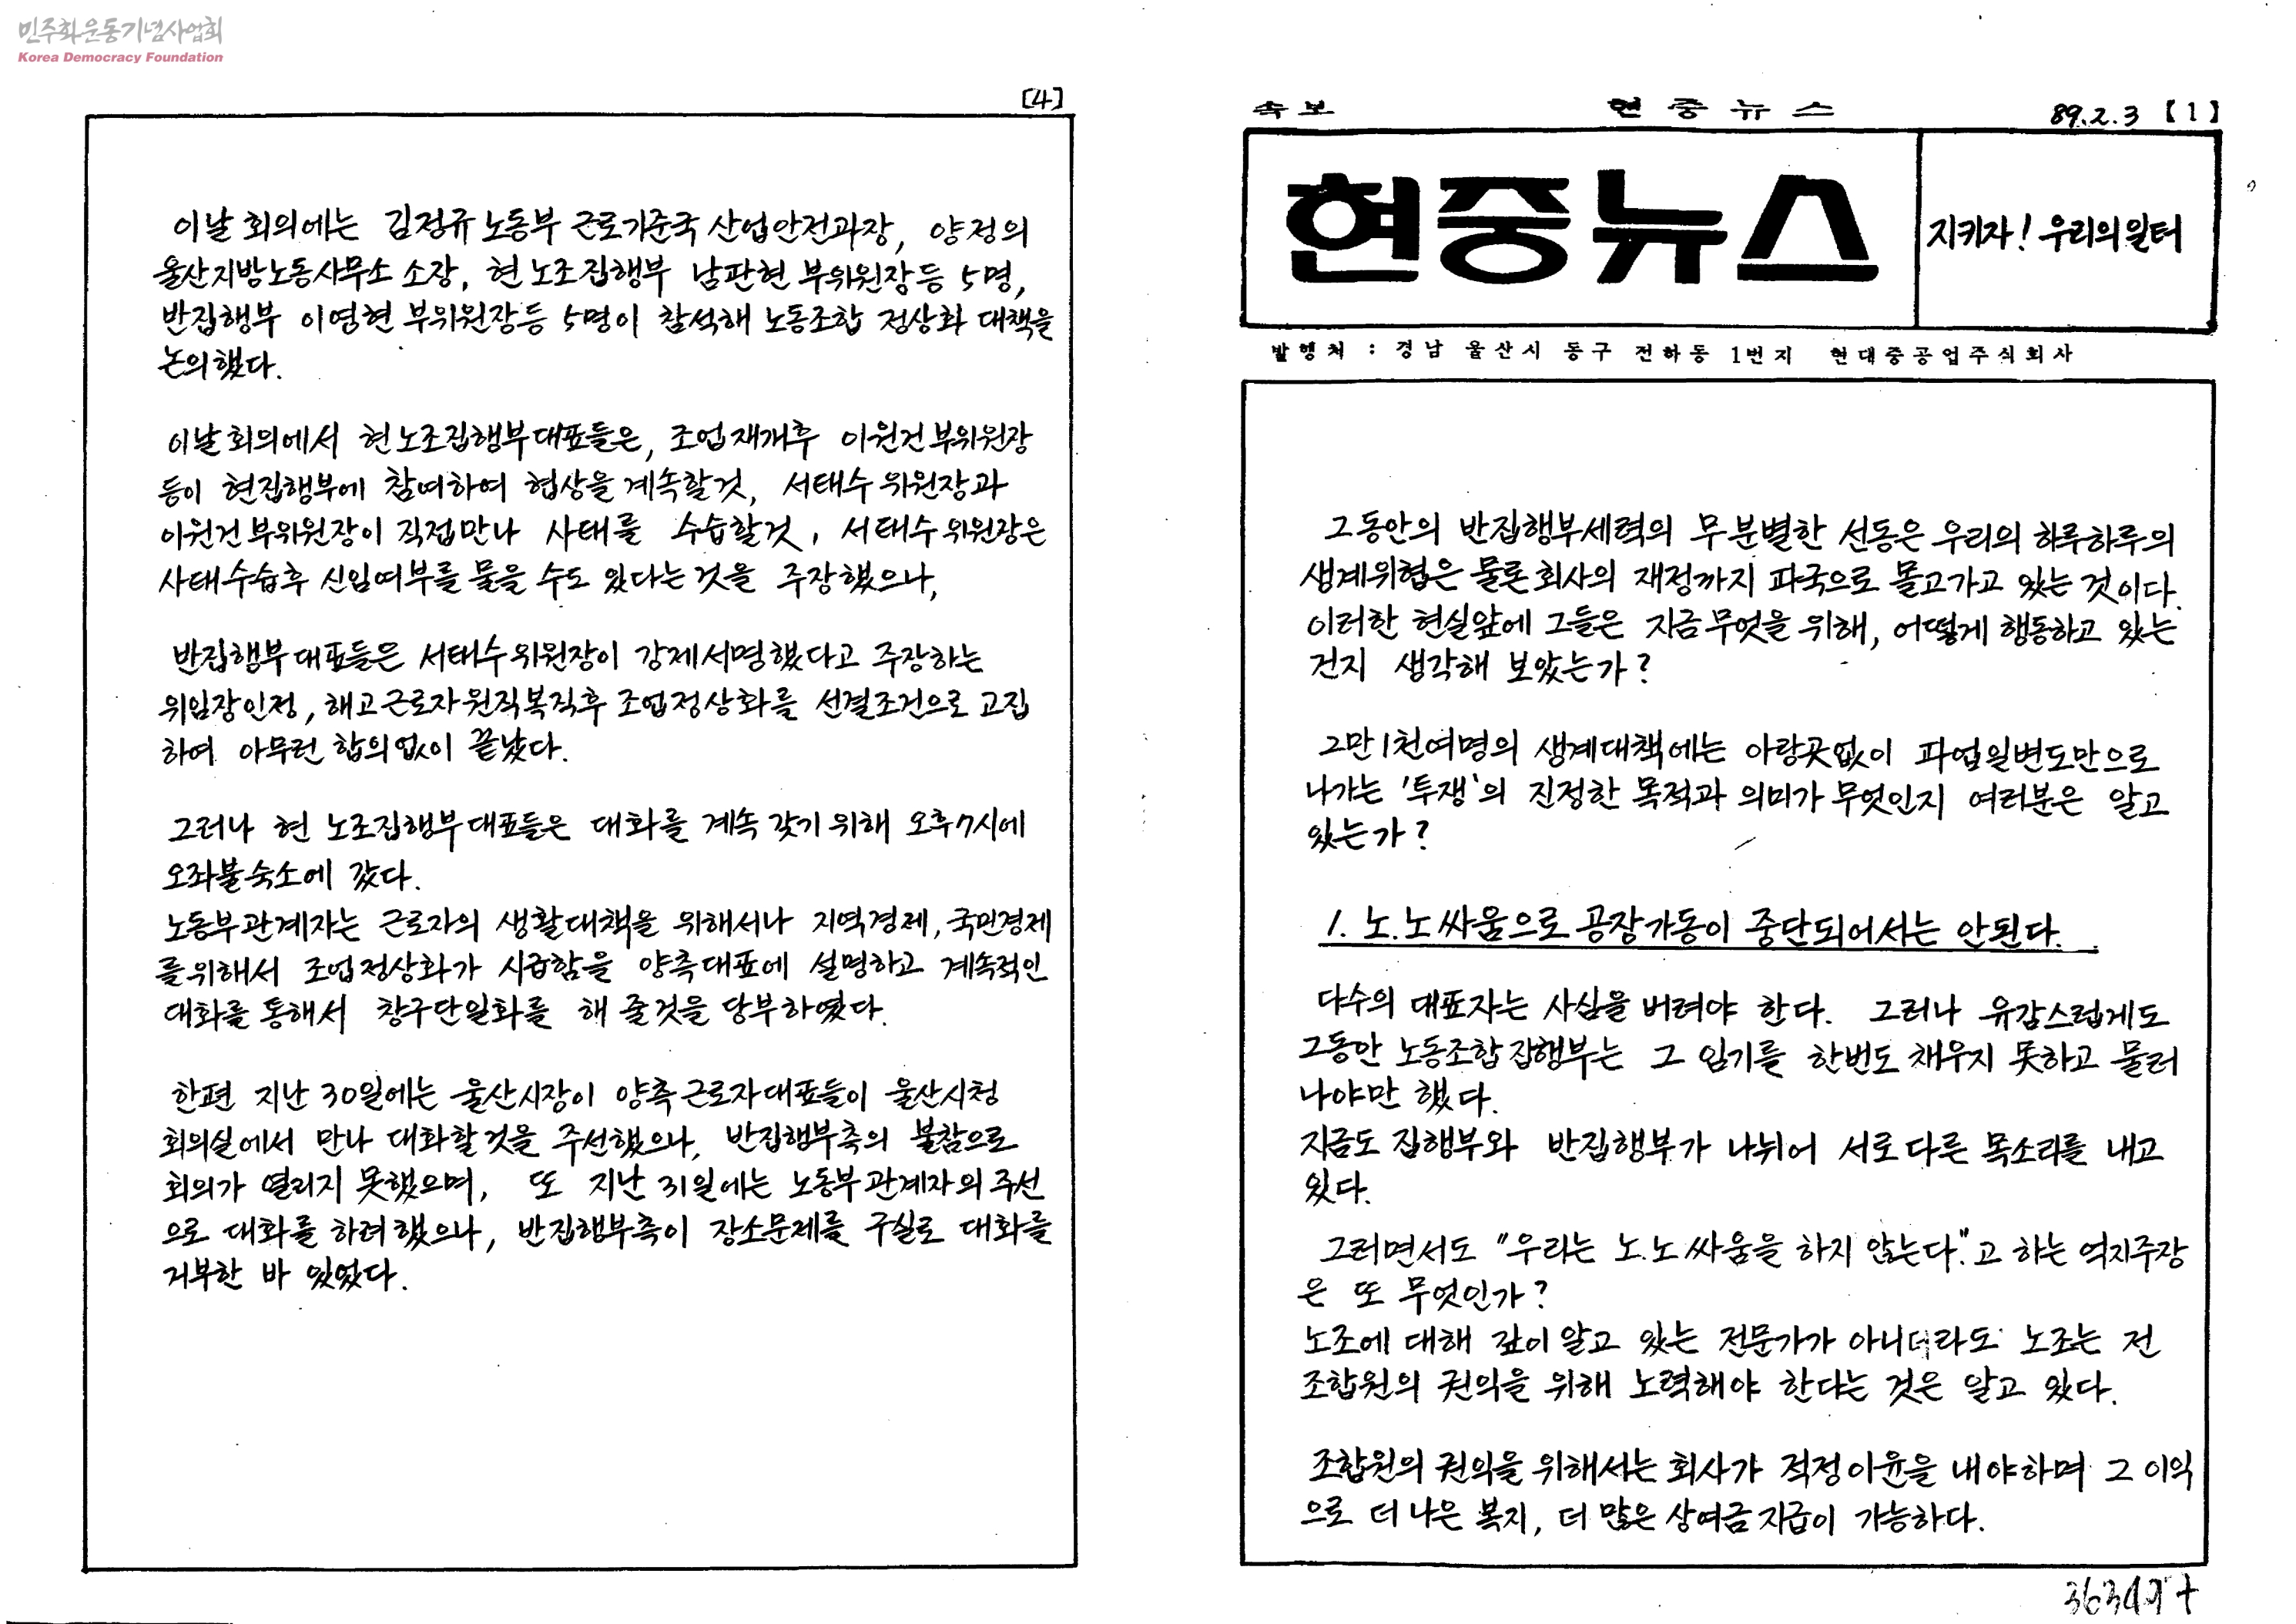 민주화운동기념사업회
Korea Democracy Foundation
[4]
이날 회의에는 김정규 노동부 근로기준국 산업안전과장, 양정의
울산지방노동사무소 소장, 현 노조집행부 남판현 부위원장등 5명,
반집행부 이영현 부위원장등 5명이 참석해 노동조합 정상화 대책을
논의했다.
이날 회의에서 현노조집행부대표들은, 조업재개후 이원건 부위원장
등이 현집행부에 참여하여 협상을 계속할것, 서태수 위원장과
이원건 부위원장이 직접만나 사태를 수습할것, 서태수 위원장은
사태수습후 신임여부를 물을 수도 있다는 것을 주장했으나,
반집행부대표들은 서태수위원장이 강제서명했다고 주장하는
위임장인정, 해고근로자원직복직후 조업정상화를 선결조건으로 고집
하여 아무런 합의없이 끝났다.
그러나 현 노조집행부대표들은 대화를 계속 갖기 위해 오후7시에
오좌불숙소에 갔다.
노동부관계자는 근로자의 생활대책을 위해서나 지역경제, 국민경제
를위해서 조업정상화가 시급함을 양측대표에 설명하고 계속적인
대화를 통해서 창구단일화를 해 줄것을 당부하였다.
한편 지난 30일에는 울산시장이 양측근로자대표들이 울산시청
회의실에서 만나 대화할것을 주선했으나, 반집행부측의 불참으로
회의가 열리지 못했으며, 또 지난 31일에는 노동부관계자의 주선
으로 대화를 하려했으나, 반집행부측이 장소문제를 구실로 대화를
거부한 바 있었다.
속보 현중뉴스 89.2.3 【1】
현중뉴스
지키자! 우리의일터
발행처 : 경남 울산시 동구 전하동 1번지 현대중공업주식회사
그동안의 반집행부세력의 무분별한 선동은 우리의 하루하루의
생계위협은 물론 회사의 재정까지 파국으로 몰고가고 있는 것이다.
이러한 현실앞에 그들은 지금 무엇을 위해, 어떻게 행동하고 있는
건지 생각해 보았는가?
그만1천여명의 생계대책에는 아랑곳없이 파업일변도만으로
나가는 '투쟁'의 진정한 목적과 의미가 무엇인지 여러분은 알고
있는가?
1. 노.노싸움으로 공장가동이 중단되어서는 안된다.
다수의 대표자는 사심을 버려야 한다. 그러나 유감스럽게도
그동안 노동조합 집행부는 그 임기를 한번도 채우지 못하고 물러
나야만 했다.
지금도 집행부와 반집행부가 나뉘어 서로 다른 목소리를 내고
있다.
그러면서도 "우리는 노.노싸움을 하지 않는다."고 하는 억지주장
은 또 무엇인가?
노조에 대해 깊이 알고 있는 전문가가 아니더라도 노조는 전
조합원의 권익을 위해 노력해야 한다는 것은 알고 있다.
조합원의 권익을 위해서는 회사가 적정이윤을 내야하며 그 이익
으로 더 나은 복지, 더 많은 상여금 지급이 가능하다.